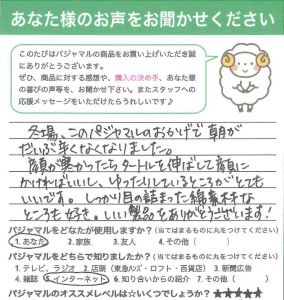 あなた様のお声をお聞かせください
このたびはパジャマルの商品をお買い上げいただき誠
にありがとうございます。
ぜひ、商品に対する感想や、購入の決め手、あなた様
の喜びの声等を、お聞かせ下さい。またスタッフへの
応援メッセージをいただけたらうれしいです♪
冬場、このパジャマルのおかげで朝が
だいぶ辛くなくなりました。
顔が寒かったらタートルを伸ばして顔に
かければいいし、ゆったりしているところがとても
いいです。しっかり目の詰まった綿素材な
ところも好き。いい製品をありがとうございます!
パジャマルをどなたが使用しますか?(当てはまるものに丸をつけてください)
1. あなた 2. 家族 3. 友人 4. その他( )
パジャマルをどちらで知りましたか?(当てはまるものに丸をつけてください)
1. テレビ、ラジオ 2. 店頭(東急ハンズ・ロフト・百貨店) 3. 新聞広告
4. 雑誌 5. インターネット 6. 知り合いからの紹介 7. その他( )
パジャマルのオススメレベルは☆いくつでしょうか?★★★★★